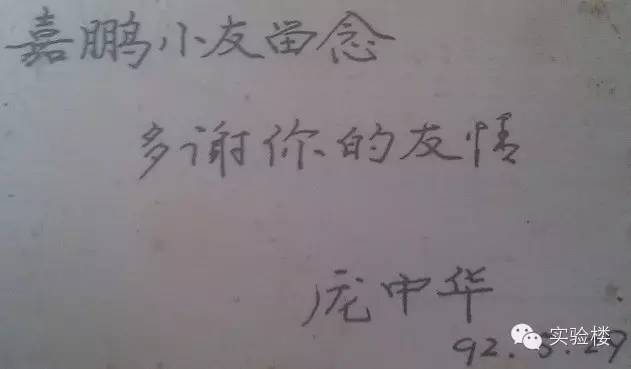 嘉鹏小友留念
多谢你的友情
庞中华
92.5.29
实验楼